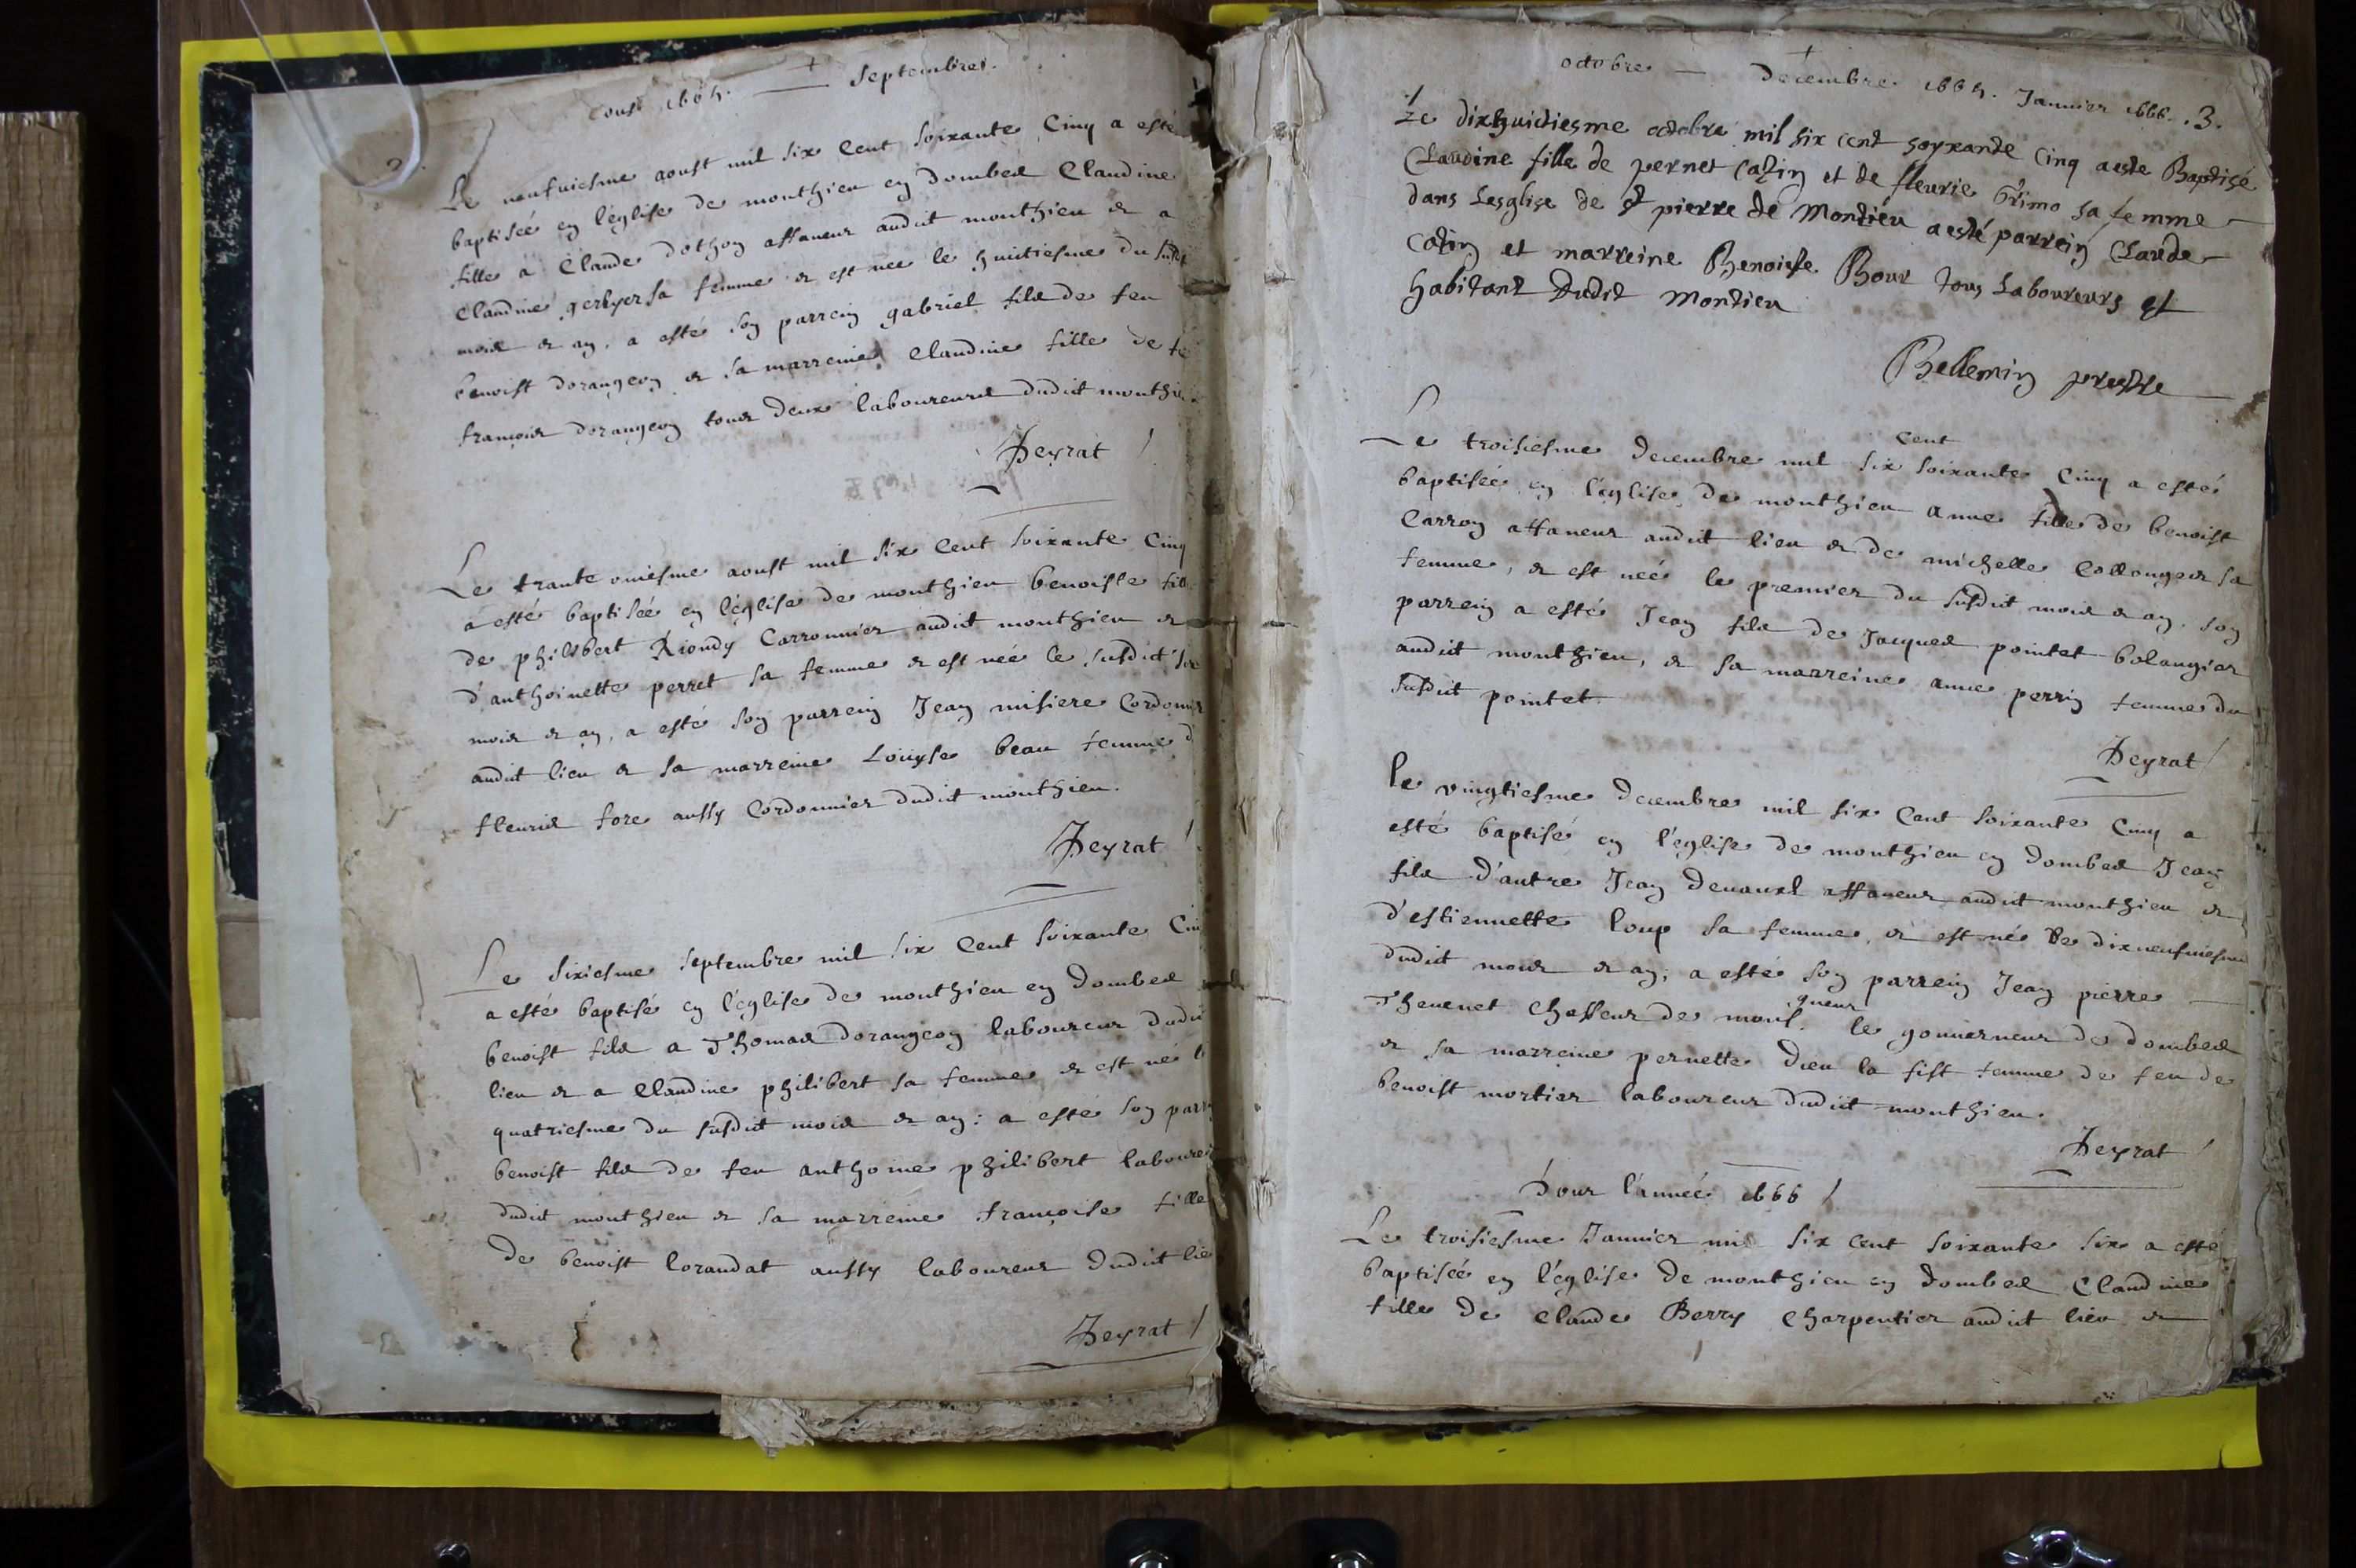 aoust 1665. — Septembre.
2
Le neufuiesme aoust mil six cent soixante Cinq a esté
baptiseé en l'église de monthieu en dombes Claudine
fille a Claude dothon affaneur audit monthieu & a
Claudine sa femme & est neé le huitiesme du susdit
mois & an, a esté son parrein gabriel fils de feu
benoist dorangeon & sa marreine Claudine fille de fe
françois dorangeon tous deux laboureurs dudit monthieu
Deyrat
Le trante oniesme aoust mil six cent soixante Cinq
a esté baptiseé en l'église de monthieu benoiste fille
de philibert Riondy Carronnier audit monthieu &
d'anthoinette perret sa femme & est neé le susdit
mois & an, a esté son parrein Jean misiere Cordonnier
audit lieu & sa marreine Louyse beau femme d
fleuris fore aussy Cordonnier dudit monthieu.
Deyrat
Le sixiesme septembre mil six cent soixante Cin
a esté baptisé en l'église de monthieu en dombes
benoist fils a Thomas dorangeon laboureur dudi
lieu & a Claudine philibert sa femme & est né l
quatriesme du susdit mois & an: a esté son parr
benoist fils de feu anthoine philibert laboure
dudit monthieu & sa marreine françoise fille
de benoist lorandat aussy laboureur dudit lie
Deyrat
octobre — decembre 1665. Januier 1666. .3.
Le dixhuictiesme octobre mil six cent soyxante Cinq a este Baptisé
Claudine fille de pernet Catin et de fleurie Grimo sa femme
dans Lesglise de St pierre de Montieu a esté parrein Claude
Catin et marreine Benoiste Bour tous Laboureurs et
habitant Dudit Montieu
Bellemin prestre
Le troisiesme decembre mil six cent soixante Cinq a esté
baptiseé en l'église de monthieu anne fille de benoist
Carron affaneur audit lieu & de michelle Collonges sa
femme, & est neé le premier du susdit mois & an. son
parrein a esté Jean fils de Jacques pointet bolangier
audit monthieu, & sa marreine anne perrin femme du
susdit pointet.
Deyrat
le vingtiesme decembre mil six cent soixante Cinq a
esté baptisé en l'église de monthieu en dombes Jean
fils d'autre Jean deuaux affaneur audit monthieu &
d'estiennette loup sa femme, & est né le dixneufuiesme
dudit mois & an; a esté son parrein Jean pierre
Theuenet Chasseur de monsgneur le gouuerneur de dombes
& sa marreine pernette dieu la fist femme de feu de
benoist mortier laboureur dudit monthieu.
Deyrat
Pour l'anneé 1666
Le troisiesme Januier mil six cent soixante six a esté
baptiseé en l'église de monthieu en dombes Claudine
fille de Claude Berry Charpentier audit lieu &